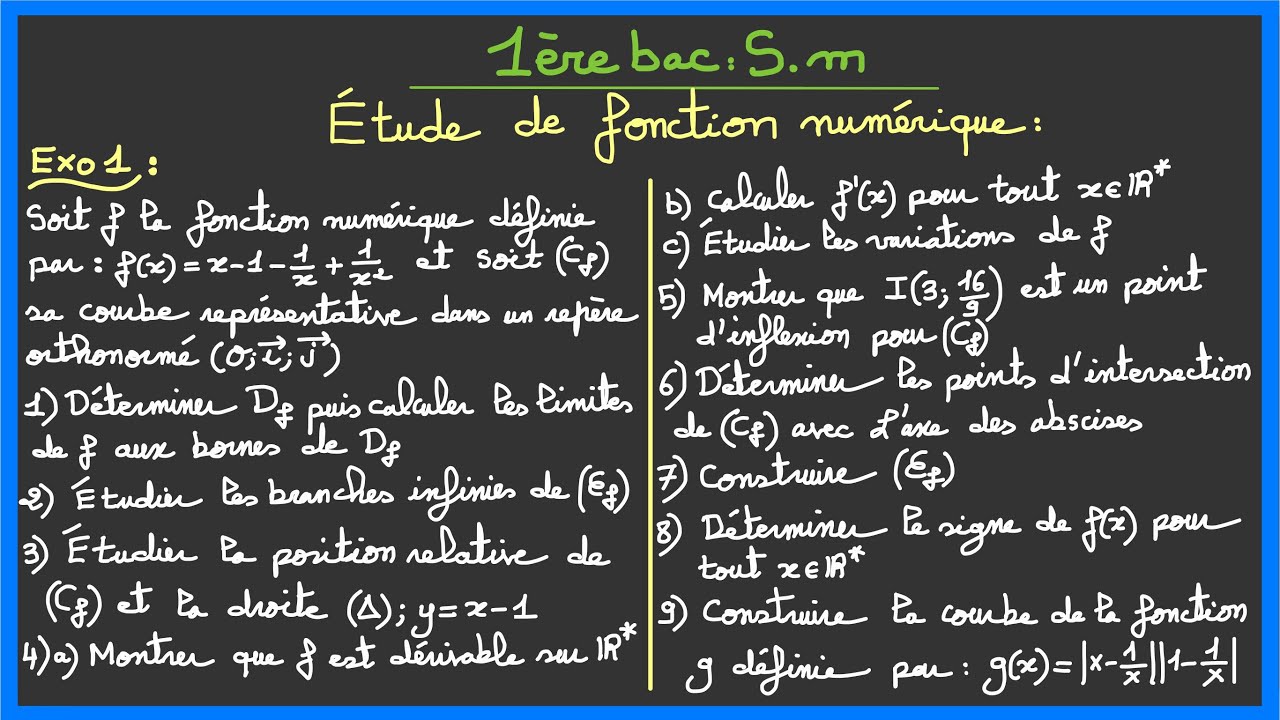 1ère bac : S.m
Étude de fonction numérique :
Exo 1 :
Soit f la fonction numérique définie
par : f(x) = x-1-1/x+1/x² et soit (Cf)
sa courbe représentative dans un repère
orthonormé (O; i⃗; j⃗)
1) Déterminer Df puis calculer les limites
de f aux bornes de Df
2) Étudier les branches infinies de (Cf)
3) Étudier la position relative de
(Cf) et la droite (Δ); y = x-1
4) a) Montrer que f est dérivable sur ℝ*
b) Calculer f'(x) pour tout x∈ℝ*
c) Étudier les variations de f
5) Montrer que I(3; 16/9) est un point
d'inflexion pour (Cf)
6) Déterminer les points d'intersection
de (Cf) avec l'axe des abscises
7) Construire (Cf)
8) Déterminer le signe de f(x) pour
tout x∈ℝ*
9) Construire la courbe de la fonction
g définie par : g(x) = |x-1/x||1-1/x|